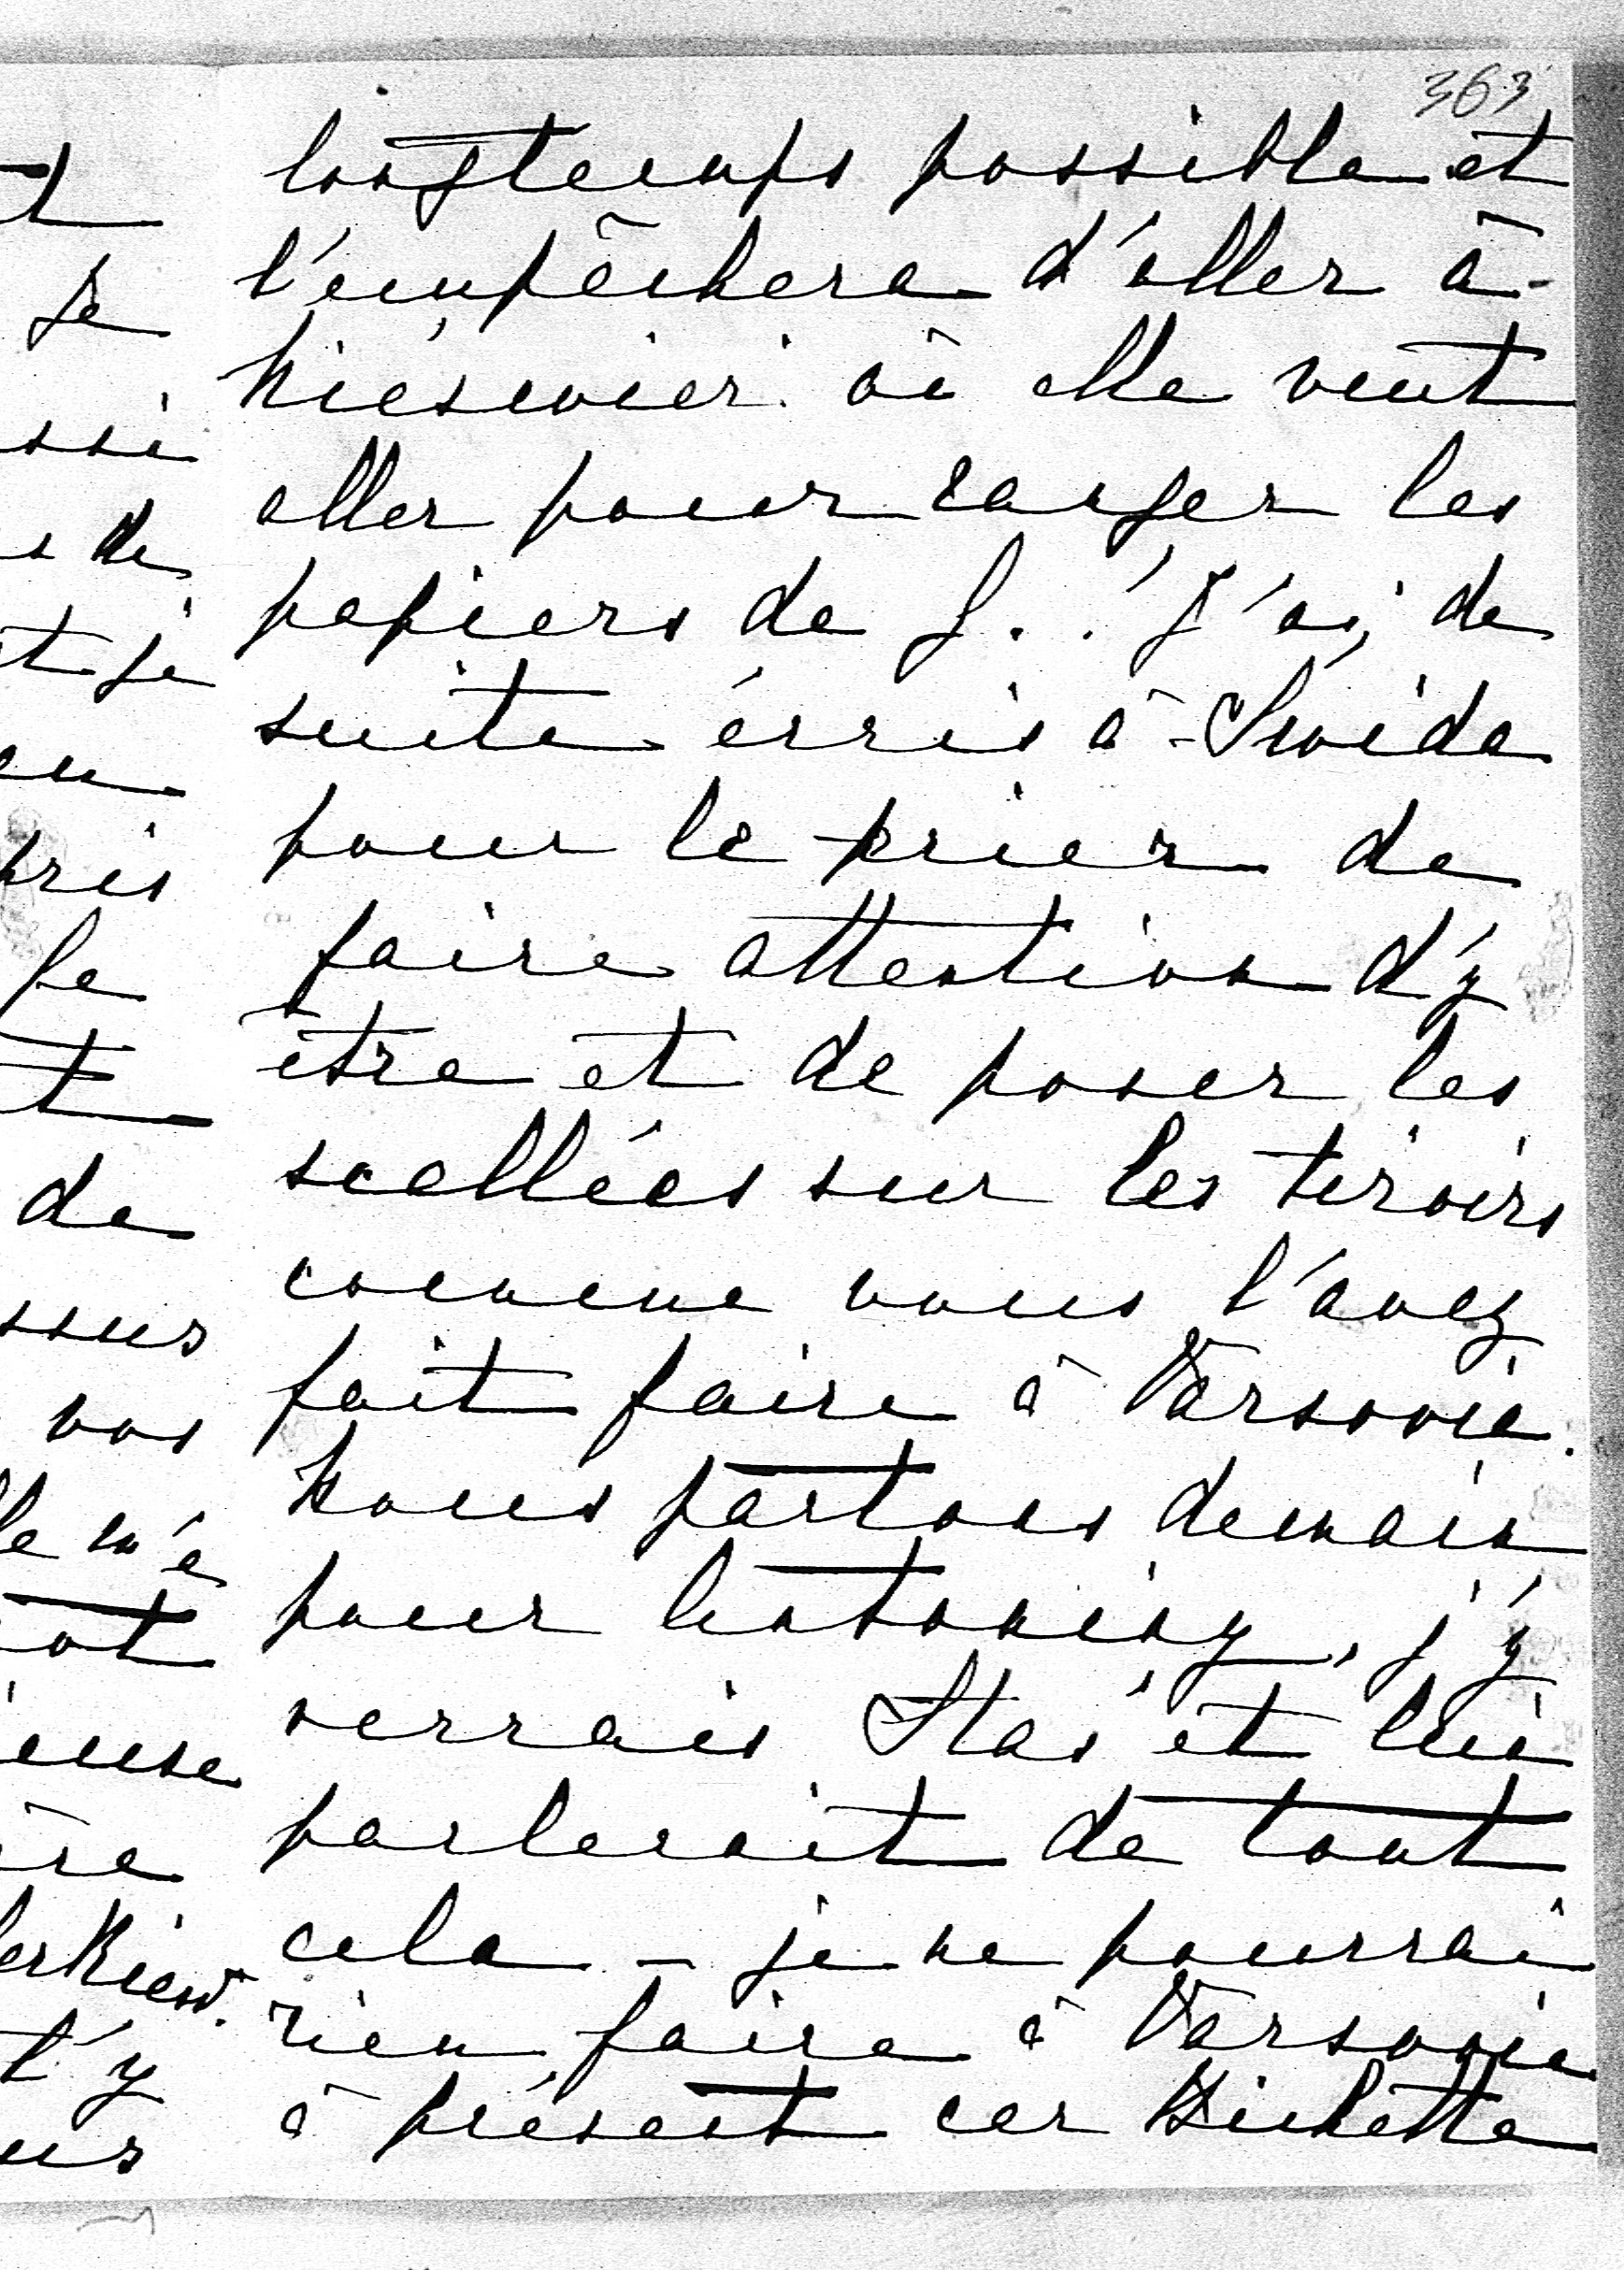 363
longtemps possible et
l'empêchera d'aller à
Nieśwież où elle veut
aller pour ranger les
papiers de J.. J'ai de
suite écris à
pour le prier de
faire attention d'y
être et de poser les
scellées sur les tiroirs
comme vous l'avez
fait faire à Varsovie.
Nous partons demain
pour , j'y
verrais Staś et lui
parlerait de tout
cela – je ne pourrai
rien faire à Varsovie
à présent car Bichette